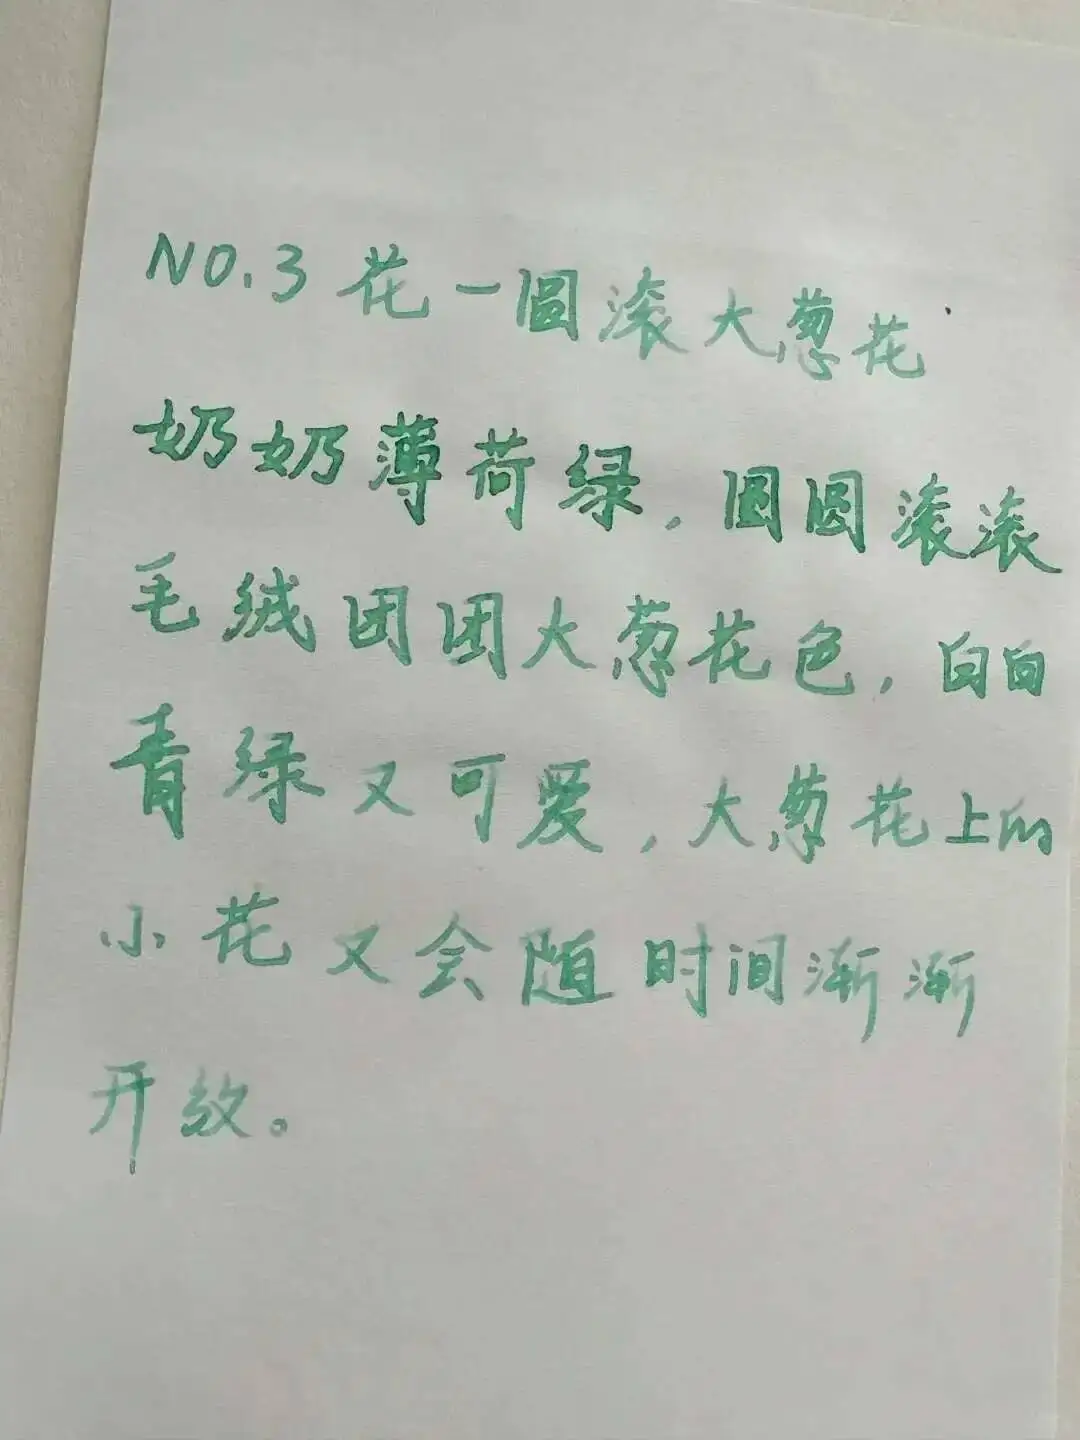 NO.3 花一圆滚大葱花
奶奶薄荷绿，圆圆滚滚
毛绒团团大葱花色，白白
青绿又可爱，大葱花上的
小花又会随时间渐渐
开放。